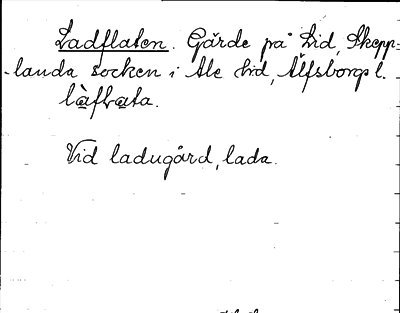 Ladflaten. Gärde på Lid, Skepp=
landa socken i Ale hd, Älfsborgs l.
làfłata.
Vid ladugård, lada.